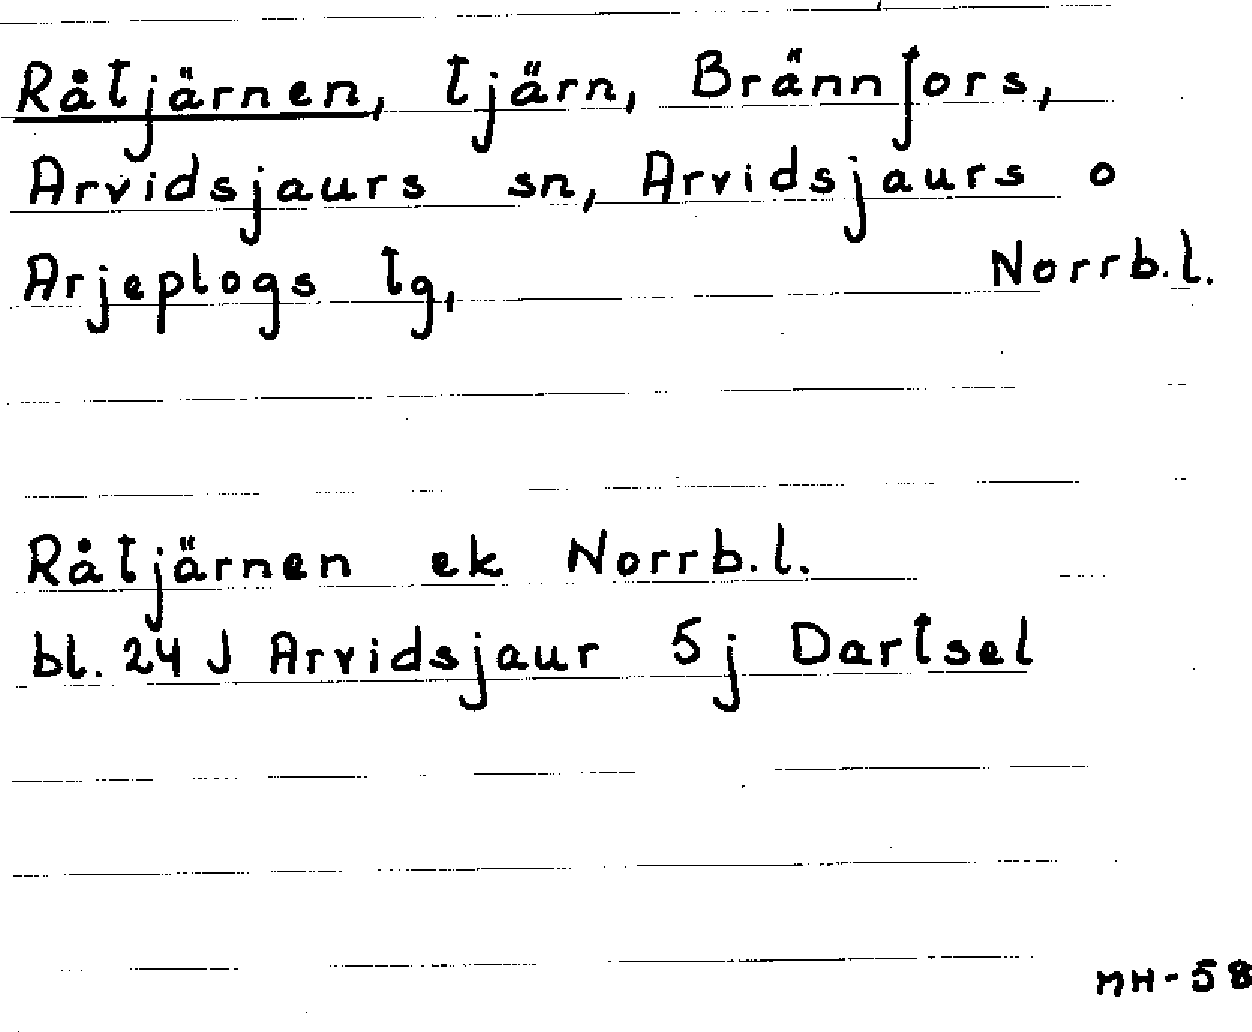 Råtjärnen, tjärn, Brännfors,
Arvidsjaurs sn, Arvidsjaurs o
Arjeplogs tg, Norrb.l.
Råtjärnen ek Norrb.l.
bl. 24 J Arvidsjaur 5 j Dartsel
MH-58